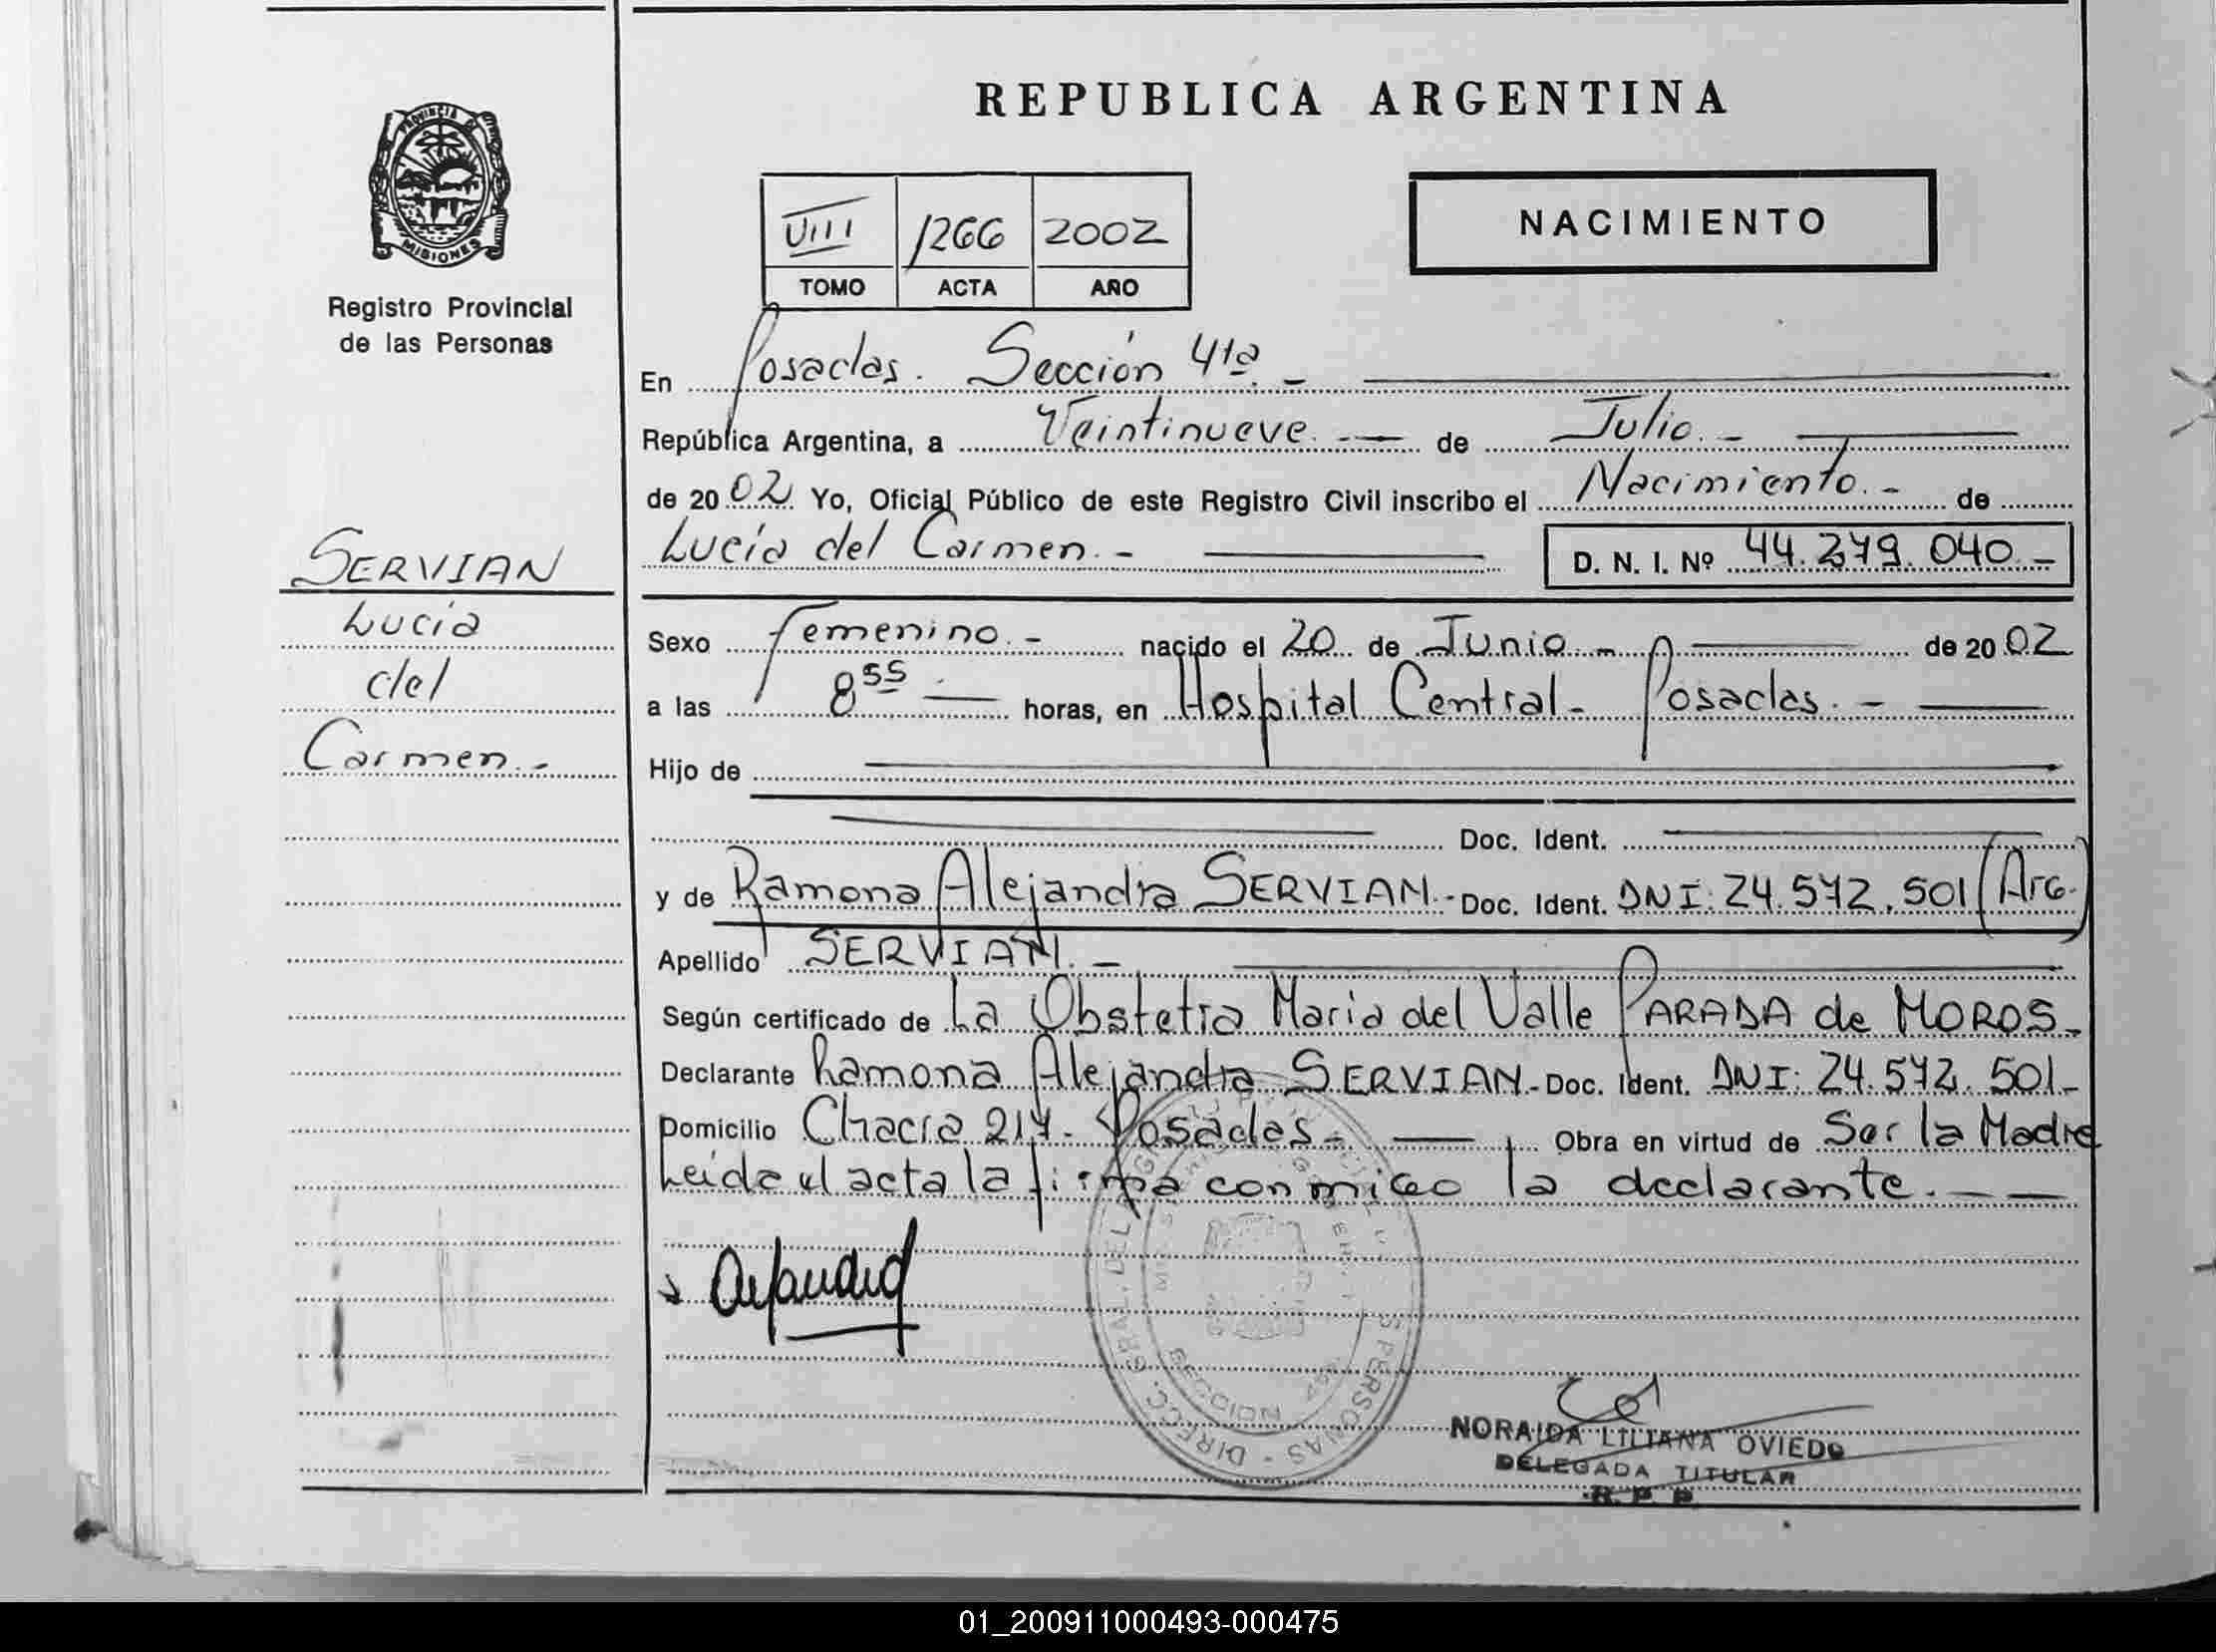 REPUBLICA ARGENTINA
PROVINCIA DE MISIONES
Registro Provincial
de las Personas
VIII 1266 2002
TOMO ACTA AÑO
NACIMIENTO
SERVIAN
Lucía
del
Carmen.-
En Posadas. Sección 4ta. -
República Argentina, a Veintinueve. - de Julio. -
de 2002 Yo, Oficial Público de este Registro Civil inscribo el Nacimiento. - de
Lucía del Carmen. - D. N. I. Nº 44.279.040.-
Sexo Femenino. - nacido el 20 de Junio. - de 2002
a las 8 55 horas, en Hospital Central - Posadas. -
Hijo de
Doc. Ident.
y de Ramona Alejandra SERVIAN.- Doc. Ident. DNI: 24.572.501 (Arg.)
Apellido SERVIAN. -
Según certificado de La Obstetra Maria del Valle PARADA de MOROS-
Declarante Ramona Alejandra SERVIAN- Doc. Ident. DNI: 24.572.501-
Domicilio Chacra 217- Posadas- Obra en virtud de Ser la Madre
Leida el acta la firma conmigo la declarante. -
NORAIDA LILIANA OVIEDO
DELEGADA TITULAR
R. P. P.
01_200911000493-000475